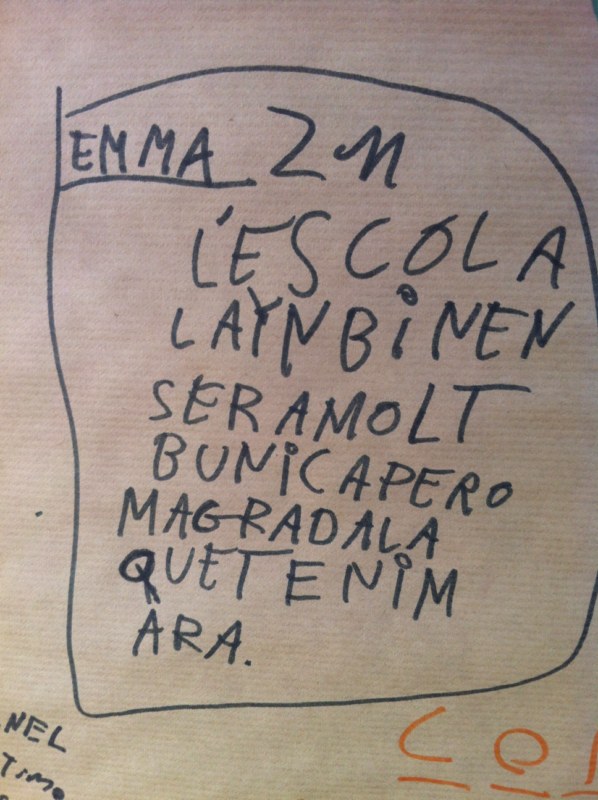 EMMA 2n
L'ESCOLA
LAYNBiNEN
SERAMOLT
BUNiCAPERO
MAGRADALA
QUETENiM
ARA.
NEL
TIMO